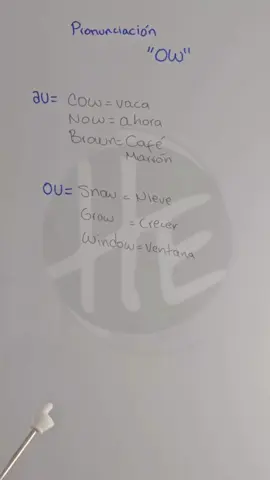 Pronunciación
"OW"
au= Cow = vaca
Now = ahora
Brown = Café
Marrón
OU= Snow = Nieve
Grow = Crecer
Window = Ventana
HE